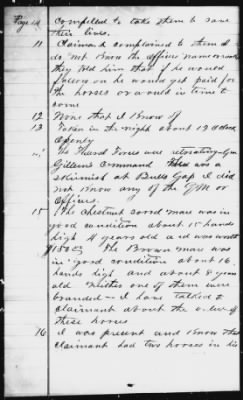 Page 14 compelled to take them to save
their lives.
11 Claimant complained to them I
do not know the officers name or rank
they told him that if he would
follow on he would get paid for
the horses or would in time to
come
12 None that I know of
13 Taken in the night about 12 O clock
Openly
" The Fedral Forces were retreating Gen
Gillems Command There was a
skirmish at Bulls Gap I did
not know any of the QM or
Officers.
15 The chestnut sorrel mare was in
good condition about 15 hands
high 4 years old and was worth
The Brown mare was
in good condition about 16
hands high and about 8 year
old Neither one of them were
branded I have talked to
claimant about the value of
these horses
16 I was present and know that
claimant had two horses in his